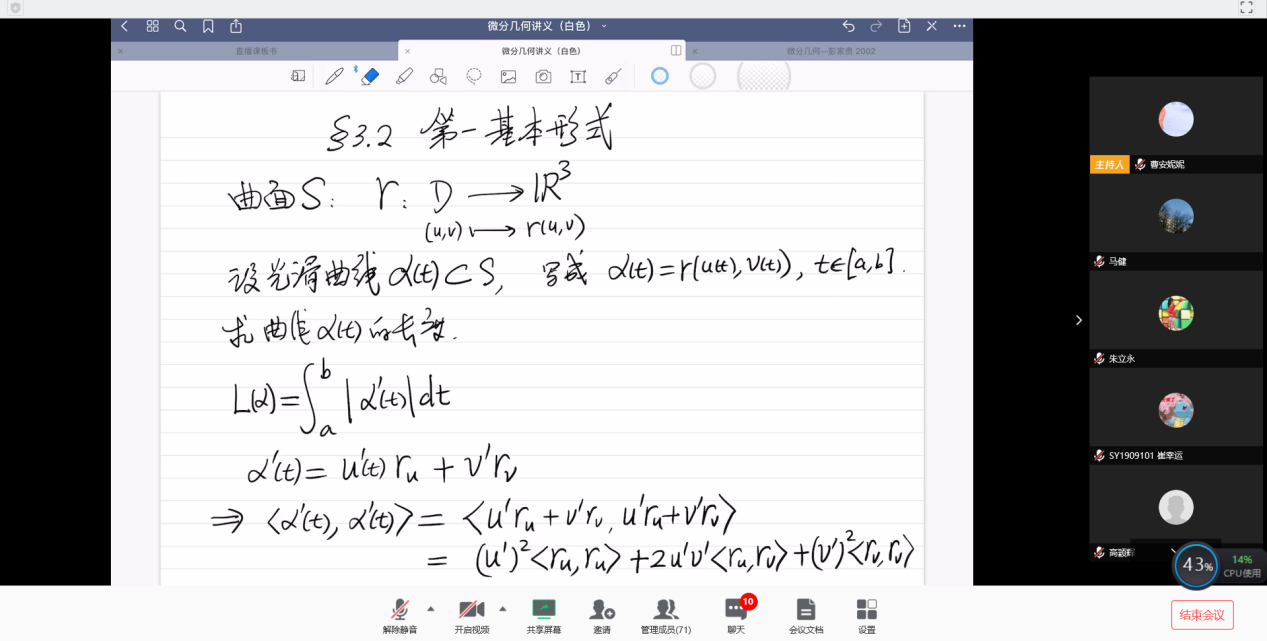 微分几何讲义（白色）
直播课板书
微分几何讲义（白色）
微分几何—彭家贵 2002
§3.2 第一基本形式
曲面S: r: D ⟶ ℝ³
(u,v) ⟼ r(u,v)
设光滑曲线 α(t)⊂S, 写成 α(t)=r(u(t),v(t)), t∈[a,b].
求曲线 α(t) 的长度.
L(α)=∫ₐᵇ |α'(t)|dt
α'(t)= u'(t) r_u + v' r_v
⇒ <α'(t), α'(t)> = <u'r_u + v'r_v, u'r_u+v'r_v>
= (u')²<r_u, r_u> + 2u'v'<r_u, r_v> + (v')²<r_v, r_v>
主持人 曹安妮妮
马健
朱立永
SY1909101 崔幸运
高颢
43%
14%
CPU使用
解除静音
开启视频
共享屏幕
邀请
管理成员(71)
10
聊天
会议文档
设置
结束会议